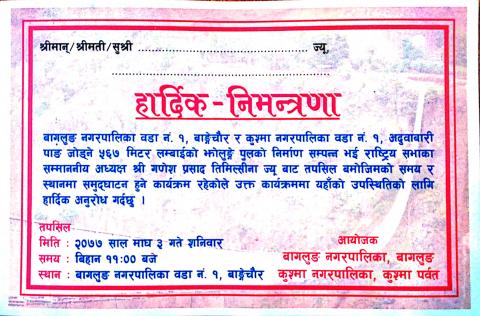 श्रीमान्/श्रीमती/सुश्री ................................................ ज्यू,
................................................
हार्दिक-निमन्त्रणा
बागलुङ नगरपालिका वडा नं. १, बाङ्गेचौर र कुश्मा नगरपालिका वडा नं. १, अदुवाबारी
पाङ जोड्ने ५६७ मिटर लम्बाईको झोलुङ्गे पुलको निर्माण सम्पन्न भई राष्ट्रिय सभाका
सम्माननीय अध्यक्ष श्री गणेश प्रसाद तिमिल्सीना ज्यू बाट तपसिल बमोजिमको समय र
स्थानमा समुद्घाटन हुने कार्यक्रम रहेकोले उक्त कार्यक्रममा यहाँको उपस्थितिको लागि
हार्दिक अनुरोध गर्दछु ।
तपसिल
मिति : २०७७ साल माघ ३ गते शनिवार
समय : बिहान ११:०० बजे
स्थान : बागलुङ नगरपालिका वडा नं. १, बाङ्गेचौर
आयोजक
बागलुङ नगरपालिका, बागलुङ
कुश्मा नगरपालिका, कुश्मा पर्वत